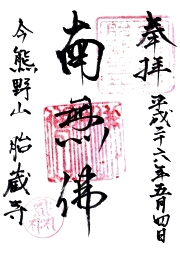 奉拝
平成二十六年五月四日
南無佛
今熊野山 胎蔵寺